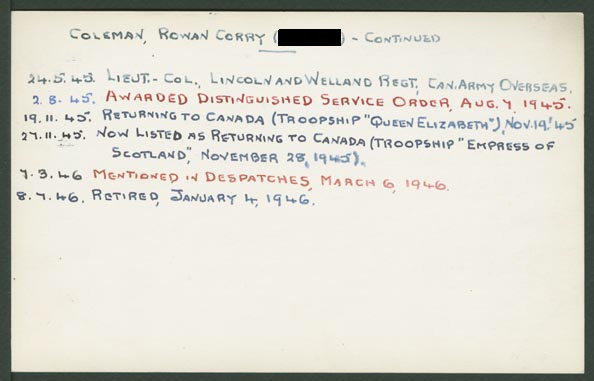 COLEMAN, ROWAN CORRY ( ) - CONTINUED
24.5.45. LIEUT.- COL., LINCOLN AND WELLAND REGT., CAN. ARMY OVERSEAS.
2.8.45. AWARDED DISTINGUISHED SERVICE ORDER, AUG. 7, 1945.
19.11.45. RETURNING TO CANADA (TROOPSHIP "QUEEN ELIZABETH"), NOV. 19/45
27.11.45. NOW LISTED AS RETURNING TO CANADA (TROOPSHIP "EMPRESS OF
SCOTLAND", NOVEMBER 28, 1945).
7.3.46 MENTIONED IN DESPATCHES, MARCH 6, 1946.
8.7.46. RETIRED, JANUARY 4, 1946.